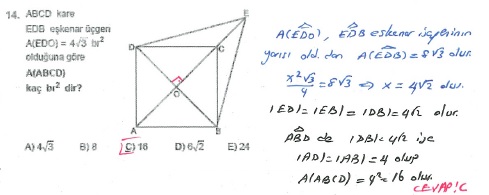 14. ABCD kare
EDB eşkenar üçgen
A(EDO) = 4√3 br²
olduğuna göre
A(ABCD)
kaç br² dir?
E
D
C
O
A
B
A) 4√3 B) 8 C) 16 D) 6√2 E) 24
A(EDO), EDB eşkenar üçgeninin
yarısı old. dan A(EDB) = 8√3 olur.
x²√3/4 = 8√3 ⇒ x = 4√2 olur.
|ED| = |EB| = |DB| = 4√2 olur.
ABD de |DB| = 4√2 ise
|AD| = |AB| = 4 olup
A(ABCD) = 4² = 16 olur.
CEVAP: C